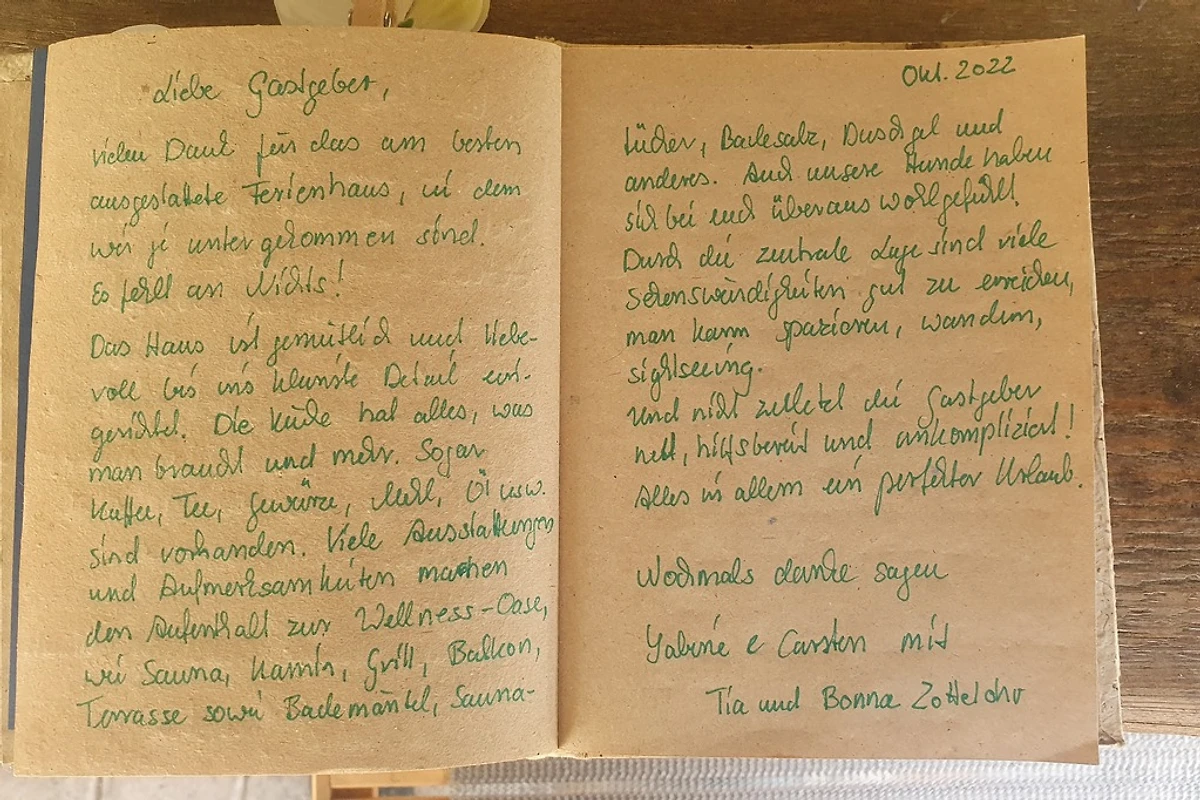 Liebe Gastgeber,
vielen Dank für das am besten
ausgestattete Ferienhaus, in dem
wir je untergekommen sind.
Es fehlt an Nichts!
Das Haus ist gemütlich und liebe-
voll bis ins kleinste Detail ein-
gerichtet. Die Küche hat alles, was
man braucht und mehr. Sogar
Kaffee, Tee, Gewürze, Mehl, Öl usw.
sind vorhanden. Viele Ausstattungen
und Aufmerksamkeiten machen
den Aufenthalt zur Wellness-Oase,
wie Sauna, Kamin, Grill, Balkon,
Terrasse sowie Bademäntel, Sauna-
Okt. 2022
tücher, Badesalz, Duschgel und
anderes. Auch unsere Hunde haben
sich bei euch überaus wohlgefühlt.
Durch die zentrale Lage sind viele
Sehenswürdigkeiten gut zu erreichen,
man kann spazieren, wandern,
sightseeing.
Und nicht zuletzt die Gastgeber
nett, hilfsbereit und unkompliziert!
Alles in allem ein perfekter Urlaub.
Nochmals danke sagen
Sabine & Carsten mit
Tia und Bonna Zottelohr